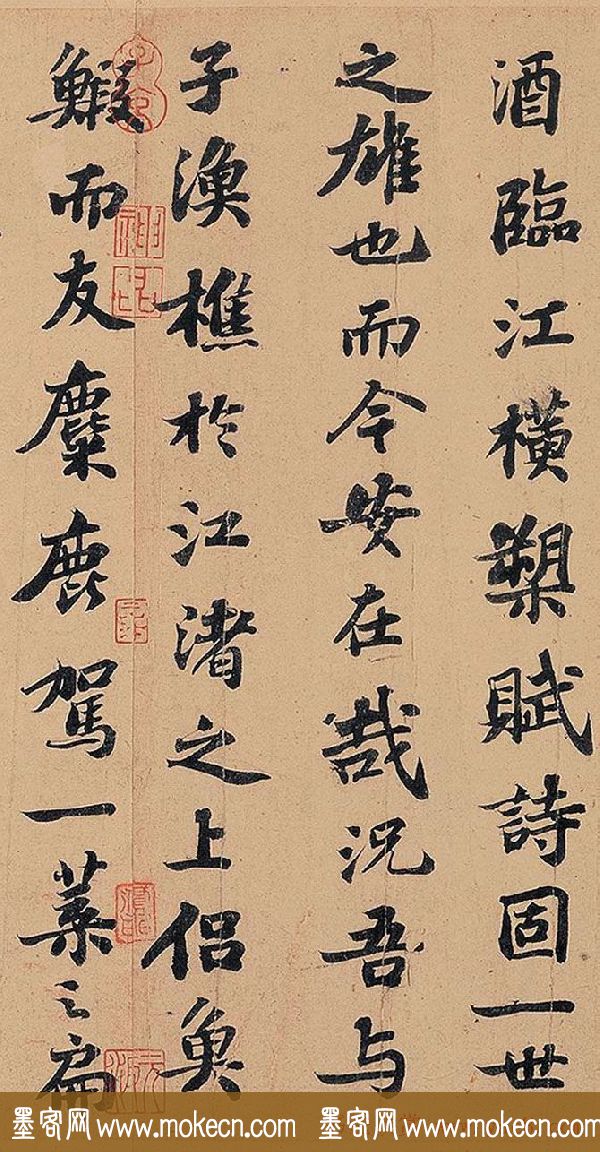 酒臨江橫槊賦詩固一世
之雄也而今安在哉況吾與
子漁樵於江渚之上侣魚
鰕而友麋鹿駕一葉之扁
墨客网 www.mokecn.com 墨客网 www.mokecn.com